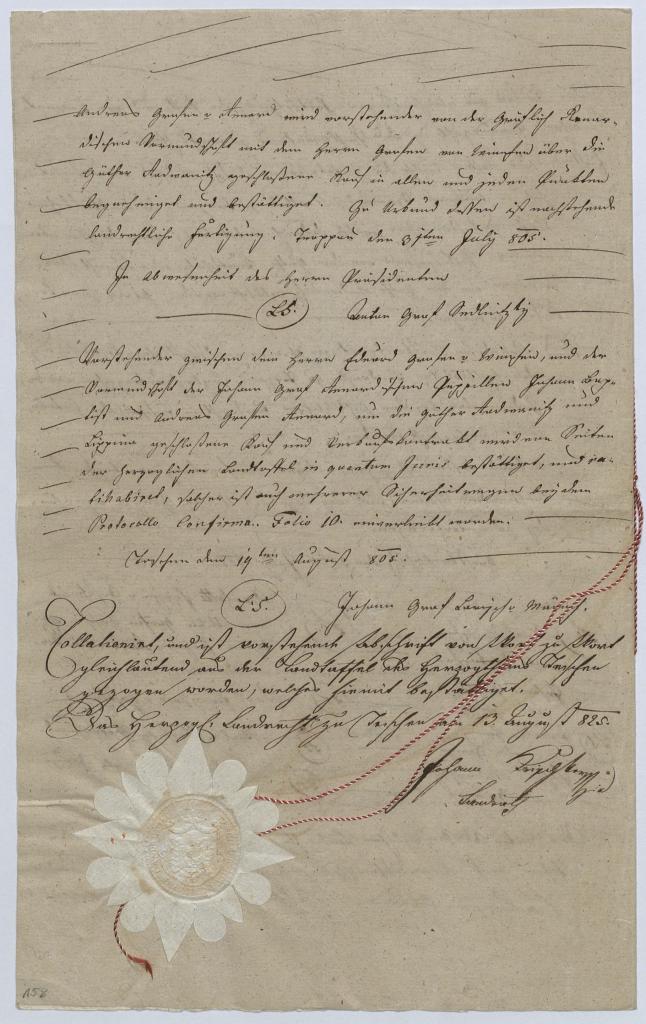 Andreas Grafen v Renard wird vorstehender von der Gräflich Renar-
dischen Vormundschaft mit dem Herrn Grafen von Wimpfen über die
Güther Radwanitz geschlossene Kauf in allen und jeden Punkten
begnehmiget und bestättiget. Zu Urkund dessen ist nachstehende
landrechtliche Fertigung. Troppau den July 805.
In Abwesenheit des Herrn Präsidenten
L.S. Anton Graf Sedlnitzky
Vorstehender zwischen dem Herrn Eduard Grafen v Wimpfen, und der
Vormundschaft der Johann Graf Renard'schen Puppillen Johann Bap-
tist und Andreas Grafen Renard, um die Güther Radwanitz und
geschlossene Kauf und Verkaufskontrakt wird von Seiten
der herzoglichen Landtaffel in quantum Juris bestättiget, und ra-
tihabiret, solcher ist auch mehrerer Sicherheit wegen bey dem
Protocollo Confirma.. Folio 10. einverleibt worden.
Teschen den 19ten August 805.
L.S. Johann Graf Larisch v Mönnich.
Collationirt, und ist vorstehende Abschrift von Wort zu Wort
gleichlautend aus der Landtaffel des Herzogthums Teschen
gezogen worden, welches hiemit bestättiget.
Das Herzogl. Landrecht zu Teschen am 13. August 825.
Johann
158